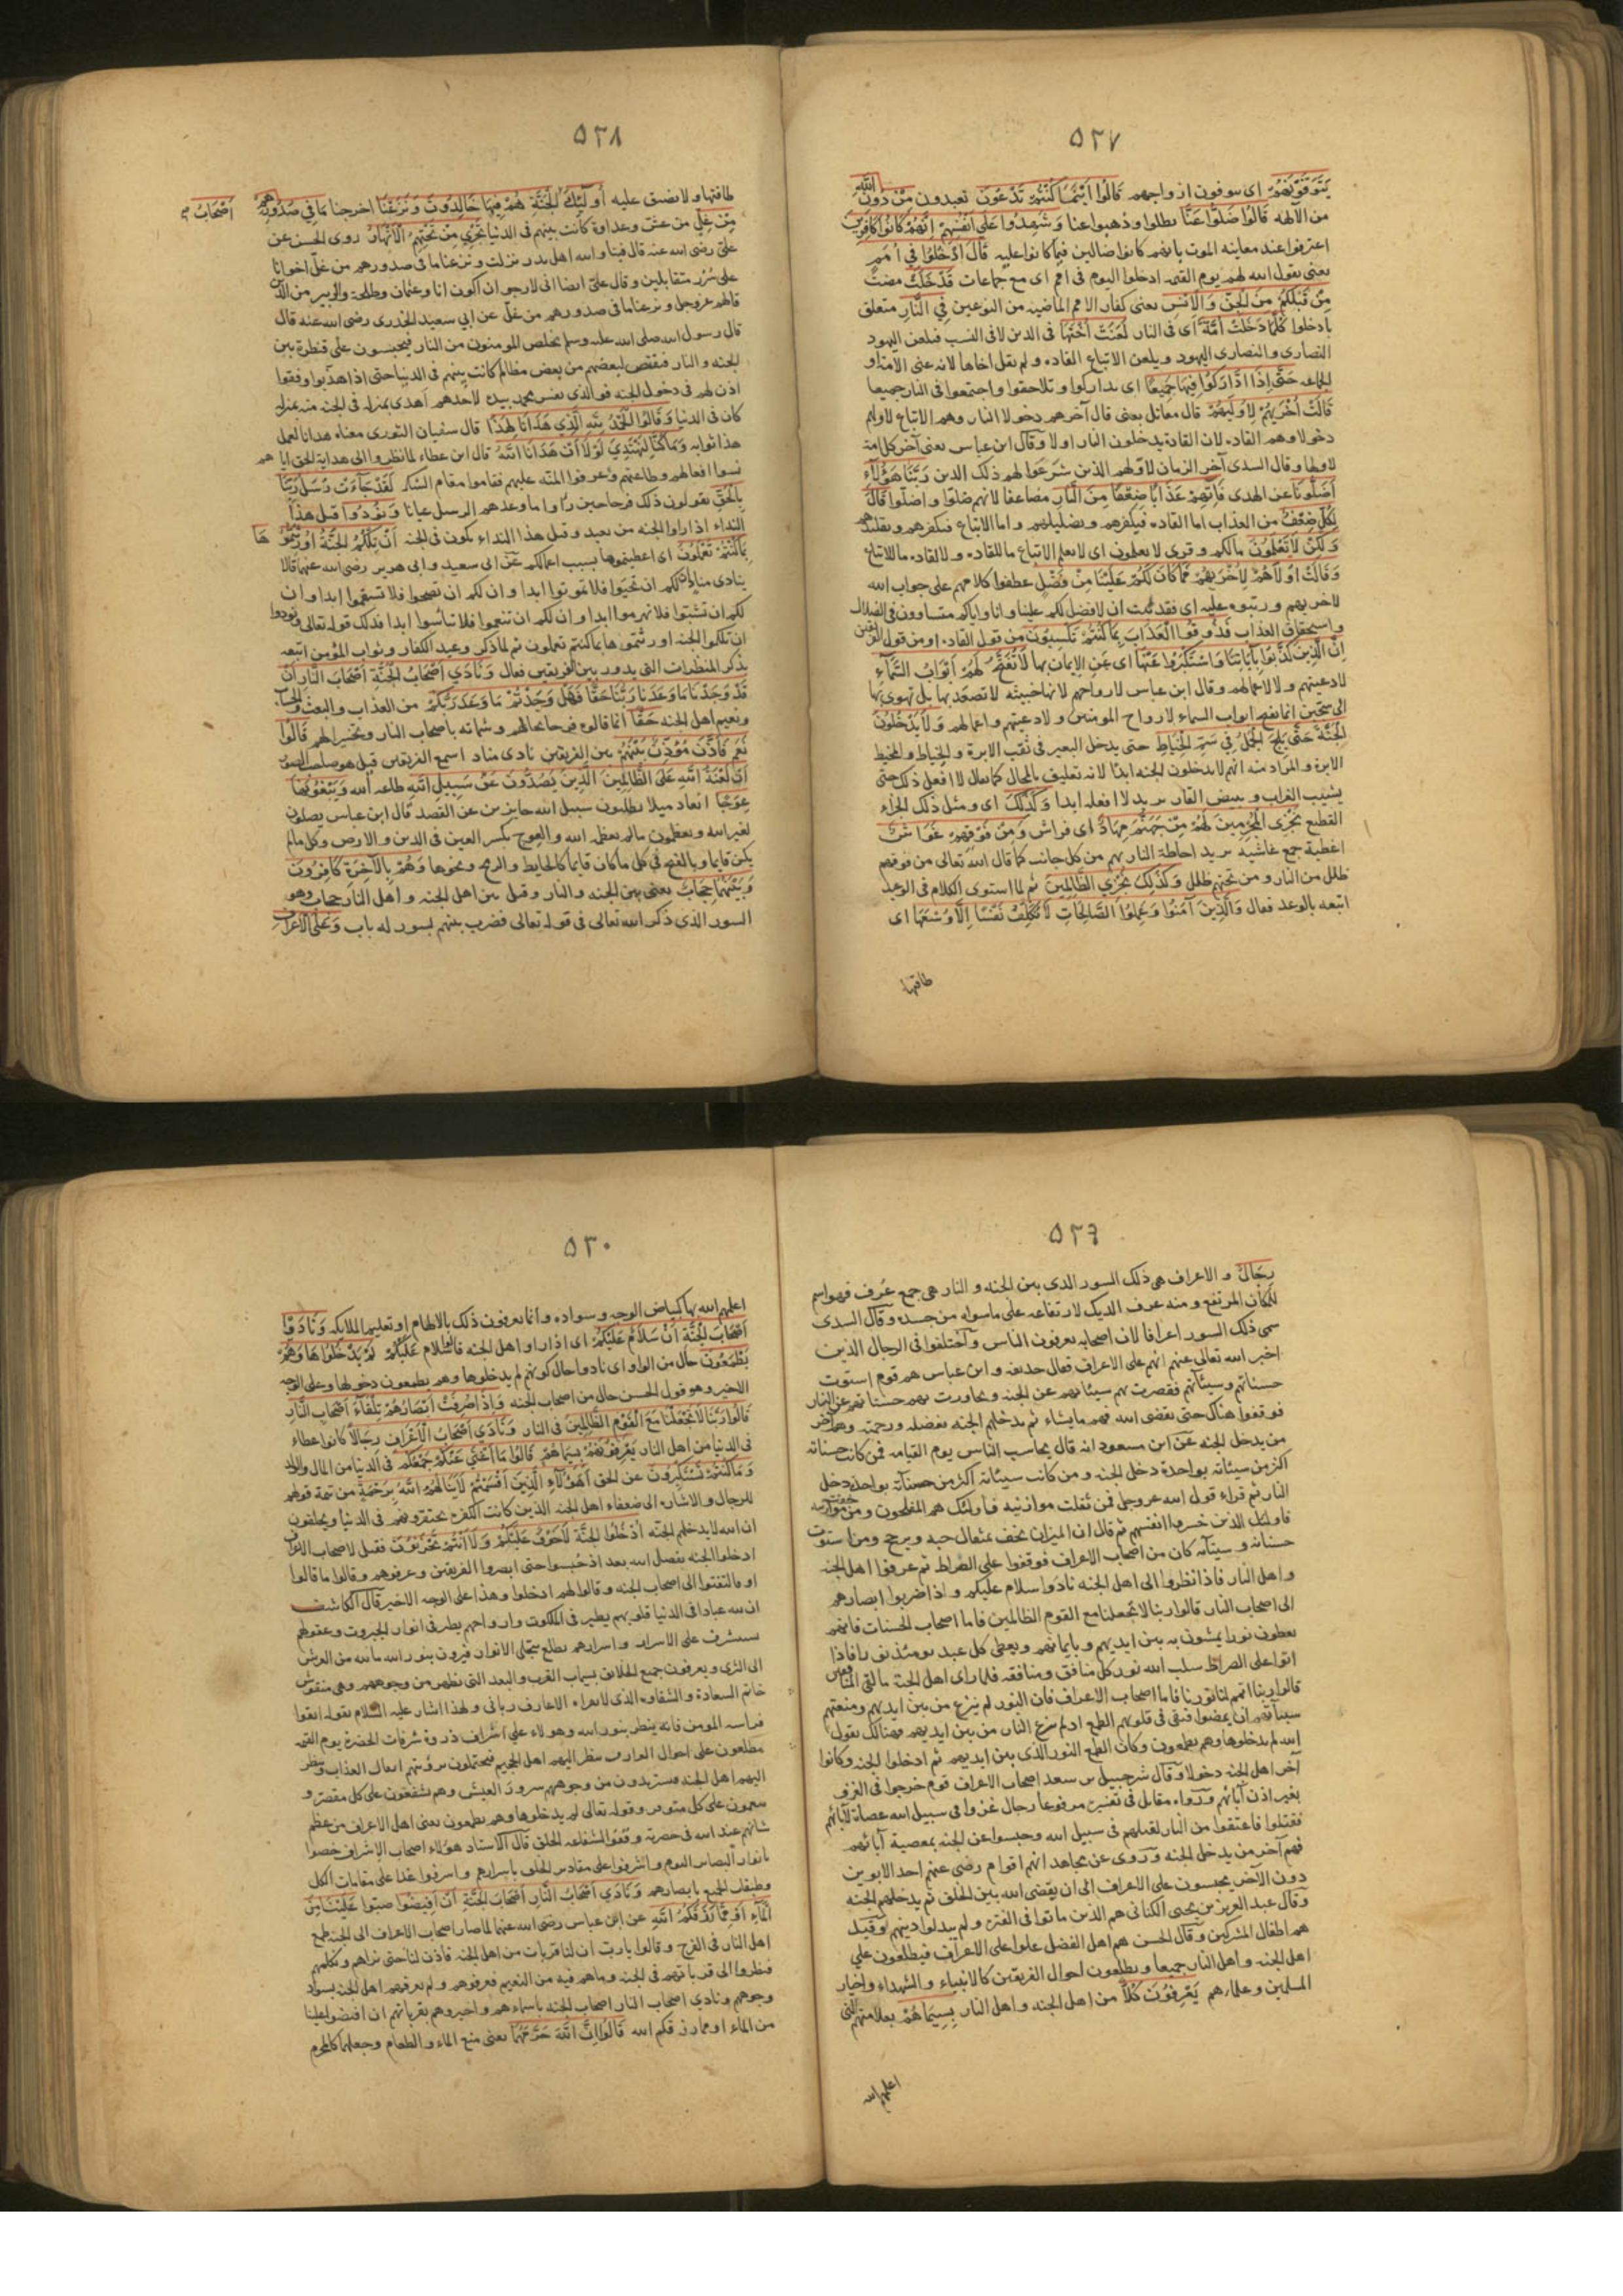 ٥٢٧
يَتَوَفَّوْنَهُمْ اى يتوفون ازواجهم قَالُوا اَيْنَمَا كُنْتُمْ تَدْعُونَ تعبدون مِنْ دُونِ اللّٰهِ
من الآلهة قَالُوا ضَلُّوا عَنَّا بطلوا وذهبوا عنا وَشَهِدُوا عَلٰى اَنْفُسِهِمْ اِنَّهُمْ كَانُوا كَافِرِينَ
اعترفوا عند معاينه الموت بانهم كانوا ضالين فيما كانوا عليه قَالَ ادْخُلُوا فِي اُمَمٍ
يعنى يقول الله لهم يوم القيمه ادخلوا اليوم فى امم اى مع جماعات قَدْ خَلَتْ مضت
مِنْ قَبْلِكُمْ مِنَ الْجِنِّ وَالْاِنْسِ يعنى كفار الامم الماضيه من النوعين فِي النَّارِ متعلق
بادخلوا كُلَّمَا دَخَلَتْ اُمَّةٌ اى فى النار لَعَنَتْ اُخْتَهَا فى الدين لا فى النسب فيلعن اليهود
النصارى والنصارى اليهود ويلعن الاتباع القاده ولم يقل اخاها لانه عنى الامة او
الجماعه حَتّٰى اِذَا ادَّارَكُوا فِيهَا جَمِيعًا اى تداركوا وتلاحقوا واجتمعوا فى النار جميعا
قَالَتْ اُخْرٰيهُمْ لِاُولٰيهُمْ قال مقاتل يعنى قال آخرهم دخولا النار وهم الاتباع لاولهم
دخولا وهم القاده لان القادة يدخلون النار اولا وقال ابن عباس يعنى آخر كل امة
لاولها وقال السدى آخر الزمان لاولهم الذين شرعوا لهم ذلك الدين رَبَّنَا هٰؤُلَاءِ
اَضَلُّونَا عن الهدى فَاٰتِهِمْ عَذَابًا ضِعْفًا مِنَ النَّارِ مضاعفا لانهم ضلوا واضلوا قَالَ
لِكُلٍّ ضِعْفٌ من العذاب اما القاده فبكفرهم وبضليلهم واما الاتباع فبكفرهم وتقليدهم
وَلٰكِنْ لَا تَعْلَمُونَ مالكم وقرى لا يعلمون اى لا يعلم الاتباع ما للقاده ولا القاده ما للاتباع
وَقَالَتْ اُولٰاهُمْ لِاُخْرٰيهُمْ فَمَا كَانَ لَكُمْ عَلَيْنَا مِنْ فَضْلٍ عطفوا كلامهم على جواب الله
لاخريهم ورتبوه عليه اى فقد ثبت ان لا فضل لكم علينا وانا واياكم متساوون فى الضلال
واستحقاق العذاب فَذُوقُوا الْعَذَابَ بِمَا كُنْتُمْ تَكْسِبُونَ من قول القاده او من قول الفريقين
اِنَّ الَّذِينَ كَذَّبُوا بِاٰيَاتِنَا وَاسْتَكْبَرُوا عَنْهَا اى عن الايمان بها لَا تُفَتَّحُ لَهُمْ اَبْوَابُ السَّمَاءِ
لادعيتهم ولا لاعمالهم وقال ابن عباس لارواحهم لانها خبيثه لا تصعد بها بل تهوى بها
الى سجين انما تفتح ابواب السماء لارواح المومنين ولادعيتهم واعمالهم وَلَا يَدْخُلُونَ
الْجَنَّةَ حَتّٰى يَلِجَ الْجَمَلُ فِي سَمِّ الْخِيَاطِ حتى يدخل البعير فى ثقب الابرة والخياط والمخيط
الابرة والمراد منه انهم لا يدخلون الجنه ابدا لانه تعليق بالمحال كما يقال لا افعل ذلك حتى
يشيب الغراب ويبيض القار يريد لا افعله ابدا وَكَذٰلِكَ اى ومثل ذلك الجزاء
القطيع نَجْزِي الْمُجْرِمِينَ لَهُمْ مِنْ جَهَنَّمَ مِهَادٌ اى فراش وَمِنْ فَوْقِهِمْ غَوَاشٍ
اغطية جمع غاشيه يريد احاطة النار بهم من كل جانب كما قال الله تعالى من فوقهم
ظلل من النار ومن تحتهم ظلل وَكَذٰلِكَ نَجْزِي الظَّالِمِينَ ثم لما استوى الكلام فى الوعيد
اتبعه بالوعد فقال وَالَّذِينَ اٰمَنُوا وَعَمِلُوا الصَّالِحَاتِ لَا نُكَلِّفُ نَفْسًا اِلَّا وُسْعَهَا اى
طاقتها
٥٢٨
طاقتها ولا تضيق عليه اُولٰئِكَ اَصْحَابُ الْجَنَّةِ هُمْ فِيهَا خَالِدُونَ وَنَزَعْنَا اخرجنا مَا فِي صُدُورِهِمْ
مِنْ غِلٍّ من غش وعداوة كانت بينهم فى الدنيا تَجْرِي مِنْ تَحْتِهِمُ الْاَنْهَارُ روى الحسن عن
على رضى الله عنه قال فينا والله اهل بدر نزلت ونزعنا ما فى صدورهم من غل اخوانا
على سرر متقابلين وقال على ايضا انى لارجو ان اكون انا وعثمان وطلحة والزبير من الذين
قال لهم عز وجل ونزعنا ما فى صدورهم من غل عن ابى سعيد الخدرى رضى الله عنه قال
قال رسول الله صلى الله عليه وسلم يخلص المومنون من النار فيحبسون على قنطرة بين
الجنه والنار فيقتص لبعضهم من بعض مظالم كانت بينهم فى الدنيا حتى اذا هذبوا ووفقوا
اذن لهم فى دخول الجنه فوالذى نفس محمد بيده لاحدهم اهدى بمنزله فى الجنه منه بمنزله
كان فى الدنيا وَقَالُوا الْحَمْدُ لِلّٰهِ الَّذِي هَدٰانَا لِهٰذَا قال سفيان الثورى معناه هدانا لعمل
هذا ثوابه وَمَا كُنَّا لِنَهْتَدِيَ لَوْلَا اَنْ هَدٰانَا اللّٰهُ قال ابن عطاء لما نظروا الى هداية الحق اياهم
نسوا افعالهم وطاعتهم وعرفوا المنه عليهم فقاموا مقام الشكر لَقَدْ جَاءَتْ رُسُلُ رَبِّنَا
بِالْحَقِّ يقولون ذلك فرحا حين راوا ما وعدهم الرسل عيانا وَنُودُوا قيل هذا
النداء اذا راوا الجنه من بعيد وقيل هذا النداء يكون فى الجنه اَنْ تِلْكُمُ الْجَنَّةُ اُورِثْتُمُوهَا
بِمَا كُنْتُمْ تَعْمَلُونَ اى اعطيتموها بسبب اعمالكم عن ابى سعيد وابى هرير رضى الله عنهما قالا
ينادى مناد ان لكم ان تحيوا فلا تموتوا ابدا وان لكم ان تصحوا فلا تسقموا ابدا وان
لكم ان تشبوا فلا تهرموا ابدا وان لكم ان تنعموا فلا تبأسوا ابدا فذلك قوله تعالى ونودوا
ان تلكوا الجنه اورثتموها بما كنتم تعملون ثم لما ذكر وعيد الكفار وثواب المؤمن اتبعه
بذكر المناظرات التى يدور بين الفريقين فقال وَنَادٰى اَصْحَابُ الْجَنَّةِ اَصْحَابَ النَّارِ اَنْ
قَدْ وَجَدْنَا مَا وَعَدَنَا رَبُّنَا حَقًّا فَهَلْ وَجَدْتُمْ مَا وَعَدَ رَبُّكُمْ من العذاب والبعث والحساب
ونعيم اهل الجنه حَقًّا انما قالوه فرحا بحالهم وشماتة باصحاب النار وتحسيرا لهم قَالُوا
نَعَمْ فَاَذَّنَ مُؤَذِّنٌ بَيْنَهُمْ بين الفريقين نادى مناد اسمع الفريقين قيل هو صاحب الصور
اَنْ لَعْنَةُ اللّٰهِ عَلَى الظَّالِمِينَ الَّذِينَ يَصُدُّونَ عَنْ سَبِيلِ اللّٰهِ طاعه الله وَيَبْغُونَهَا
عِوَجًا ميلا يطلبون سبيل الله جايزين عن القصد قال ابن عباس يصلون
لغير الله ويعظمون ما لم يعظمه الله والعوج بكسر العين فى الدين والارض وكل ما لم
يكن قايما وبالفتح فى كل ما كان قايما كالحايط والرمح ونحوها وَهُمْ بِالْاٰخِرَةِ كَافِرُونَ
وَبَيْنَهُمَا حِجَابٌ يعنى بين الجنه والنار وقيل بين اهل الجنه واهل النار حجاب وهو
السور الذى ذكر الله تعالى فى قوله تعالى فضرب بينهم بسور له باب وَعَلَى الْاَعْرَافِ
٥٢٩
رِجَالٌ والاعراف هى ذلك السور الذى بين الجنه والنار هى جمع عرف فهو اسم
للمكان المرتفع ومنه عرف الديك لارتفاعه على ما سواه من جسده وقال السدى
سمى ذلك السور اعرافا لان اصحابه يعرفون الناس واختلفوا فى الرجال الذين
اخبر الله تعالى عنهم انهم على الاعراف فقال حذيفه وابن عباس هم قوم استوت
حسناتهم وسيئاتهم فقصرت بهم سيئاتهم عن الجنه وتجاوزت بهم حسناتهم عن النار
فوقفوا هناك حتى يقضى الله فيهم ما يشاء ثم يدخلهم الجنه بفضله ورحمته وهم آخر
من يدخل الجنه عن ابن مسعود انه قال يحاسب الناس يوم القيامه فمن كانت حسناته
اكثر من سيئاته بواحدة دخل الجنه ومن كانت سيئاته اكثر من حسناته بواحدة دخل
النار ثم قراء قول الله عز وجل فمن ثقلت موازينه فاولئك هم المفلحون ومن خفت موازينه
فاولئك الذين خسروا انفسهم ثم قال ان الميزان يخف بمثقال حبه ويرجح ومن استوت
حسناته وسيئاته كان من اصحاب الاعراف فوقفوا على الصراط ثم عرفوا اهل الجنه
واهل النار فاذا نظروا الى اهل الجنه نادوا سلام عليكم واذا ضربوا ابصارهم
الى اصحاب النار قالوا ربنا لا تجعلنا مع القوم الظالمين فاما اصحاب الحسنات فانهم
يعطون نورا يمشون به بين ايديهم وبايمانهم ويعطى كل عبد يومئذ نورا فاذا
اتوا على الصراط سلب الله نور كل منافق ومنافقه فلما راى اهل الجنة ما لقى المنافقين
قالوا ربنا اتمم لنا نورنا فاما اصحاب الاعراف فان النور لم ينزع من بين ايديهم ومنعتهم
سيئاتهم ان يمضوا فبقى فى قلوبهم الطمع اذ لم ينزع النار من بين ايديهم فهنالك يقول
الله لم يدخلوها وهم يطمعون وكان الطمع النور الذى بين ايديهم ثم ادخلوا الجنه وكانوا
آخر اهل الجنه دخولا وقال شرحبيل بن سعد اصحاب الاعراف قوم خرجوا فى الغزو
بغير اذن آبائهم ورواه مقاتل فى تفسيره مرفوعا رجال غزوا فى سبيل الله عصاة لآبائهم
فقتلوا فاعتقوا من النار لقتلهم فى سبيل الله وحبسوا عن الجنه بمعصية آبائهم
فهم آخر من يدخل الجنه وروى عن مجاهد انهم اقوام رضى عنهم احد الابوين
دون الآخر يحبسون على الاعراف الى ان يقضى الله بين الخلق ثم يدخلهم الجنه
وقال عبد العزيز بن يحيى الكنانى هم الذين ماتوا فى الفترة ولم يبدلوا دينهم وقيل
هم اطفال المشركين وقال الحسن هم اهل الفضل علوا على الاعراف فيطلعون على
اهل الجنه واهل النار جميعا ويطلعون احوال الفريقين كالانبياء والشهداء واخيار
المسلمين وعلمائهم يَعْرِفُونَ كُلًّا من اهل الجنه واهل النار بِسِيمَاهُمْ بعلامتهم التى
اعلمهم الله
٥٣٠
اعلمهم الله بها كبياض الوجه وسواده وانما يعرفون ذلك بالالهام او تعليم الملائكه وَنَادَوْا
اَصْحَابَ الْجَنَّةِ اَنْ سَلَامٌ عَلَيْكُمْ اى اذا راوا اهل الجنه قالوا سلام عليكم لَمْ يَدْخُلُوهَا وَهُمْ
يَطْمَعُونَ حال من الواو اى نادوا حال كونهم لم يدخلوها وهم يطمعون دخولها وعلى الوجه
الاخير وهو قول الحسن حال من اصحاب الجنه وَاِذَا صُرِفَتْ اَبْصَارُهُمْ تِلْقَاءَ اَصْحَابِ النَّارِ
قَالُوا رَبَّنَا لَا تَجْعَلْنَا مَعَ الْقَوْمِ الظَّالِمِينَ فى النار وَنَادٰى اَصْحَابُ الْاَعْرَافِ رِجَالًا كانوا عظماء
فى الدنيا من اهل النار يَعْرِفُونَهُمْ بِسِيمَاهُمْ قَالُوا مَا اَغْنٰى عَنْكُمْ جَمْعُكُمْ فى الدنيا من المال والولد
وَمَا كُنْتُمْ تَسْتَكْبِرُونَ عن الحق اَهٰؤُلَاءِ الَّذِينَ اَقْسَمْتُمْ لَا يَنَالُهُمُ اللّٰهُ بِرَحْمَةٍ من تتمة قولهم
للرجال والاشاره الى ضعفاء اهل الجنه الذين كانت الكفرة يحتقرونهم فى الدنيا ويحلفون
ان الله لا يدخلهم الجنه اُدْخُلُوا الْجَنَّةَ لَا خَوْفٌ عَلَيْكُمْ وَلَا اَنْتُمْ تَحْزَنُونَ فقيل لاصحاب الاعراف
ادخلوا الجنه بفضل الله بعد اذ حبسوا حتى ابصروا الفريقين وعرفوهم وقالوا ما قالوا
او فالتفتوا الى اصحاب الجنه وقالوا لهم ادخلوا وهذا على الوجه الاخير قال الكاشف
ان لله عبادا فى الدنيا قلوبهم يطير فى الملكوت وارواحهم يطير فى انوار الجبروت وعقولهم
على الاسرار واسرارهم الانوار فيرون بنور الله ما من العرش
الى الثرى ويعرفون جميع الخلائق بسيماء القرب والبعد التى تظهر من وجوههم وهى منقوش
خاتم السعادة والشقاوه الذى لا يقراه الا عارف ربانى ولهذا اشار عليه السلام بقوله اتقوا
فراسه المومن فانه ينظر بنور الله وهولاء على اشراف ذروة شرفات الحضرة يوم القيمه
مطلعون على احوال العارف ينظر اليهم اهل الجحيم برؤيتهم العذاب وينظر
اليهم اهل الجنه من وجوههم سرور العيش وهم يشفعون على كل مقصر و
على كل وقوله تعالى لم يدخلوها وهم يطمعون يعنى اهل الاعراف من عظم
شانهم عند الله فى حضرته وقفوا لشفاعه الخلق قال الاستاد هؤلاء اصحاب الاشراف خصوا
بانوار البصائر اليوم واشرفوا على مقادير الخلق باسرارهم واشرفوا غدا على مقامات الكل
وطبقات الجميع بابصارهم وَنَادٰى اَصْحَابُ النَّارِ اَصْحَابَ الْجَنَّةِ اَنْ اَفِيضُوا صبوا عَلَيْنَا مِنَ
الْمَاءِ اَوْ مِمَّا رَزَقَكُمُ اللّٰهُ عن ابن عباس رضى الله عنهما لما صار اصحاب الاعراف الى الجنه طمع
اهل النار فى الفرج وقالوا يا رب ان لنا قرابات من اهل الجنه فأذن لنا حتى نراهم ونكلمهم
فنظروا الى قراباتهم فى الجنه وما هم فيه من النعيم فعرفوهم ولم يعرفهم اهل الجنه بسواد
وجوههم ونادى اصحاب النار اصحاب الجنه باسماءهم واخبروهم بقراباتهم ان افيضوا علينا
من الماء او مما رزقكم الله قَالُوا اِنَّ اللّٰهَ حَرَّمَهُمَا يعنى منع الماء والطعام وجعلهما كالمحرم